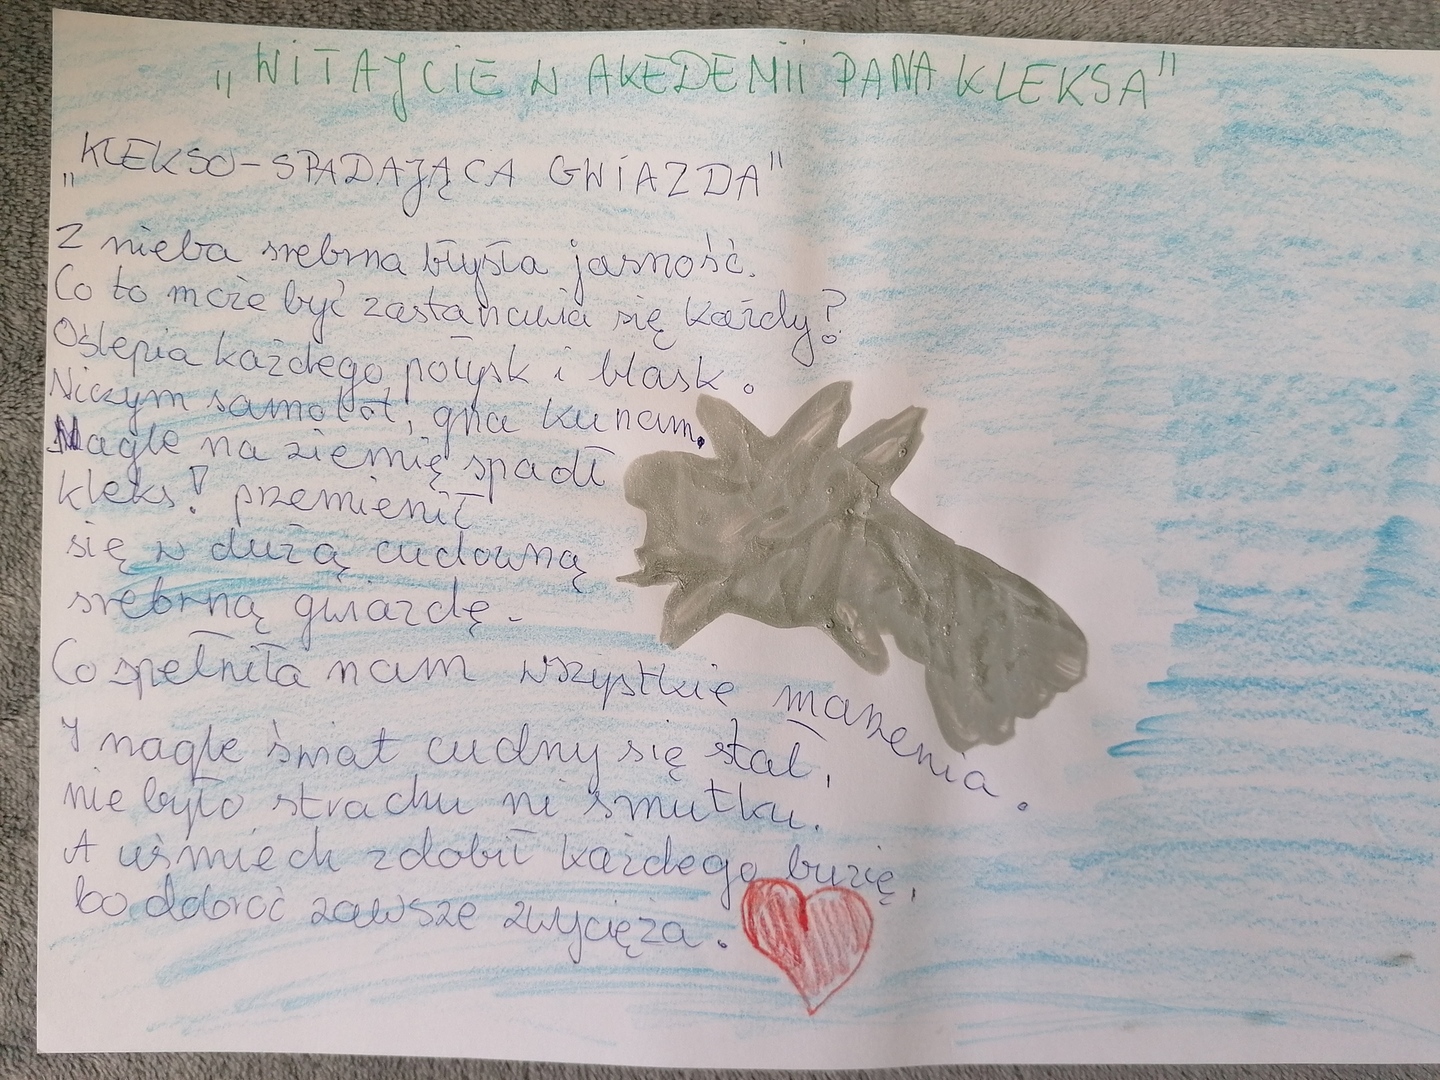 „WITAJCIE W AKEDEMII PANA KLEKSA"
„KLEKSO-SPADAJĄCA GWIAZDA"
Z nieba srebrna błysła jasność.
Co to może być zastanawia się każdy?
Oślepia każdego połysk i blask.
Niczym samolot, gna ku nam.
Nagle na ziemię spadł
kleks! przemienił
się w dużą cudowną
srebrną gwiazdę.
Co spełniła nam wszystkie marzenia.
I nagle świat cudny się stał,
nie było strachu ni smutku.
A uśmiech zdobił każdego buzię,
bo dobroć zawsze zwycięża.